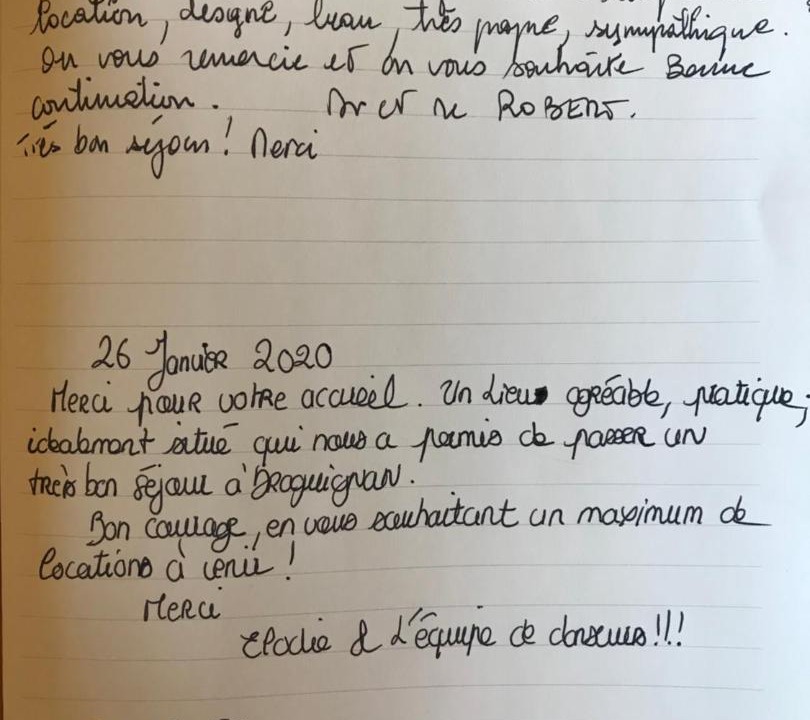 location, designé, beau, très propre, sympathique.
On vous remercie et on vous souhaite Bonne
continuation. Mr et Me ROBERT.
Très bon séjour! Merci
26 Janvier 2020
Merci pour votre accueil. Un Lieu agréable, pratique,
idéalement situé qui nous a permis de passer un
très bon séjour à Draguignan.
Bon courage, en vous souhaitant un maximum de
locations à venir!
Merci
Elodie & L'équipe de danseurs!!!